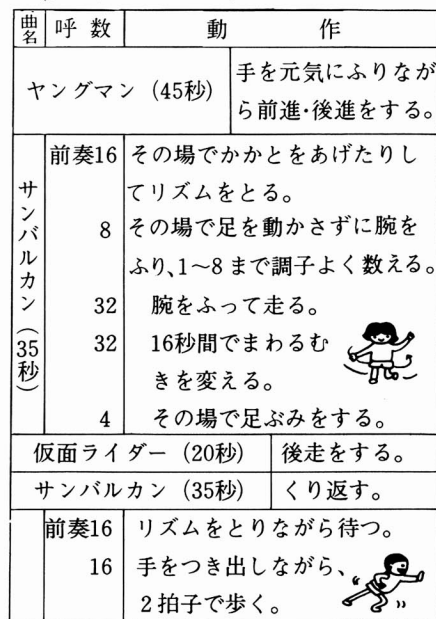 曲名 呼数 動作
ヤングマン（45秒） 手を元気にふりなが
ら前進・後進をする。
サンバルカン（35秒）
前奏16 その場でかかとをあげたりし
てリズムをとる。
8 その場で足を動かさずに腕を
ふり、1〜8まで調子よく数える。
32 腕をふって走る。
32 16秒間でまわるむ
きを変える。
4 その場で足ぶみをする。
仮面ライダー（20秒） 後走をする。
サンバルカン（35秒） くり返す。
前奏16 リズムをとりながら待つ。
16 手をつき出しながら、
2拍子で歩く。